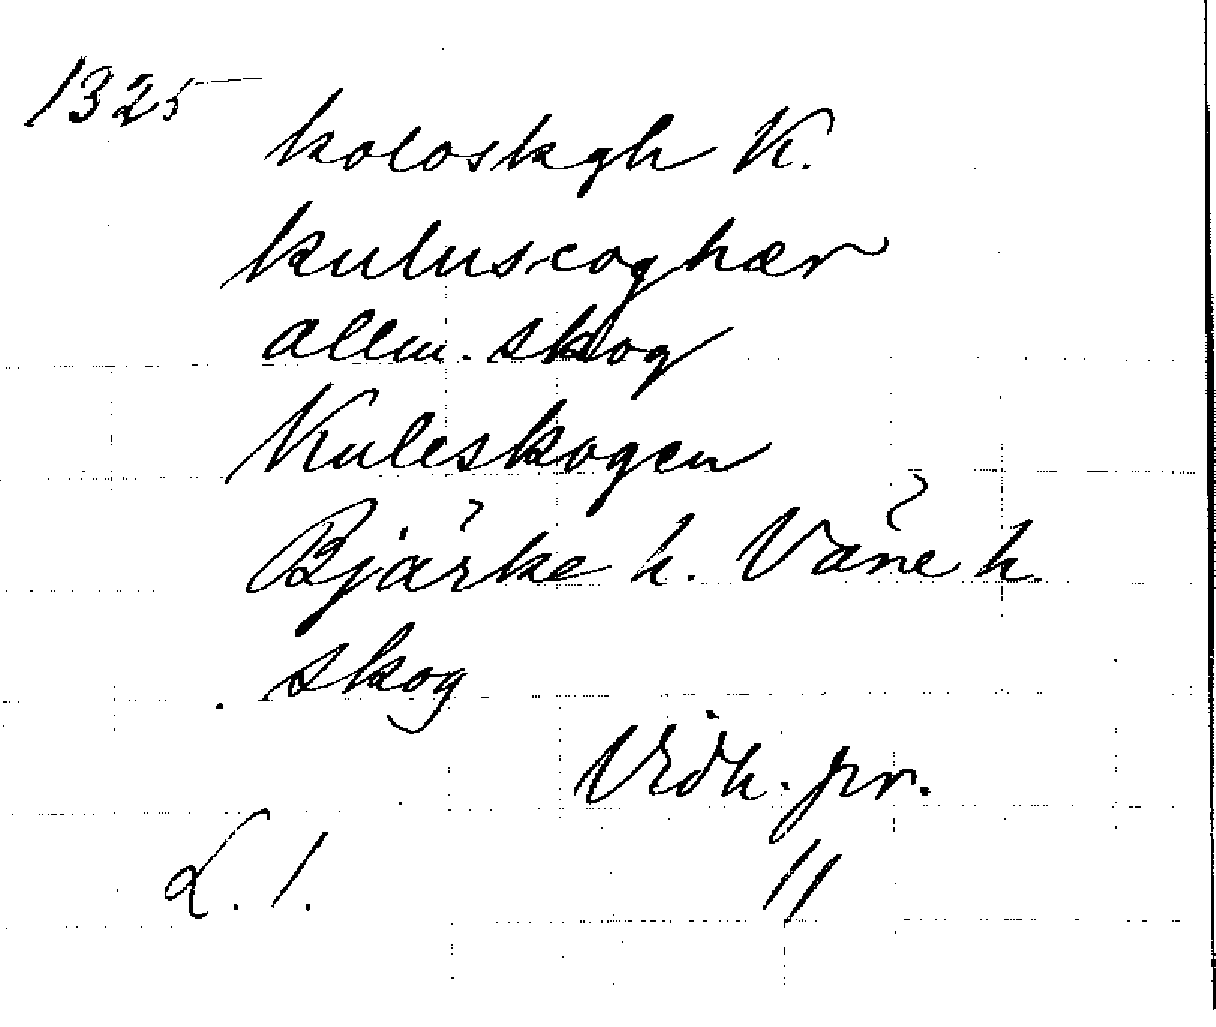 1325
koloskgh K.
kuluscoghær
allm. skog
Kuleskogen
Bjärke h. Väne h.
skog
Vidh. pr.
L. 1. 11